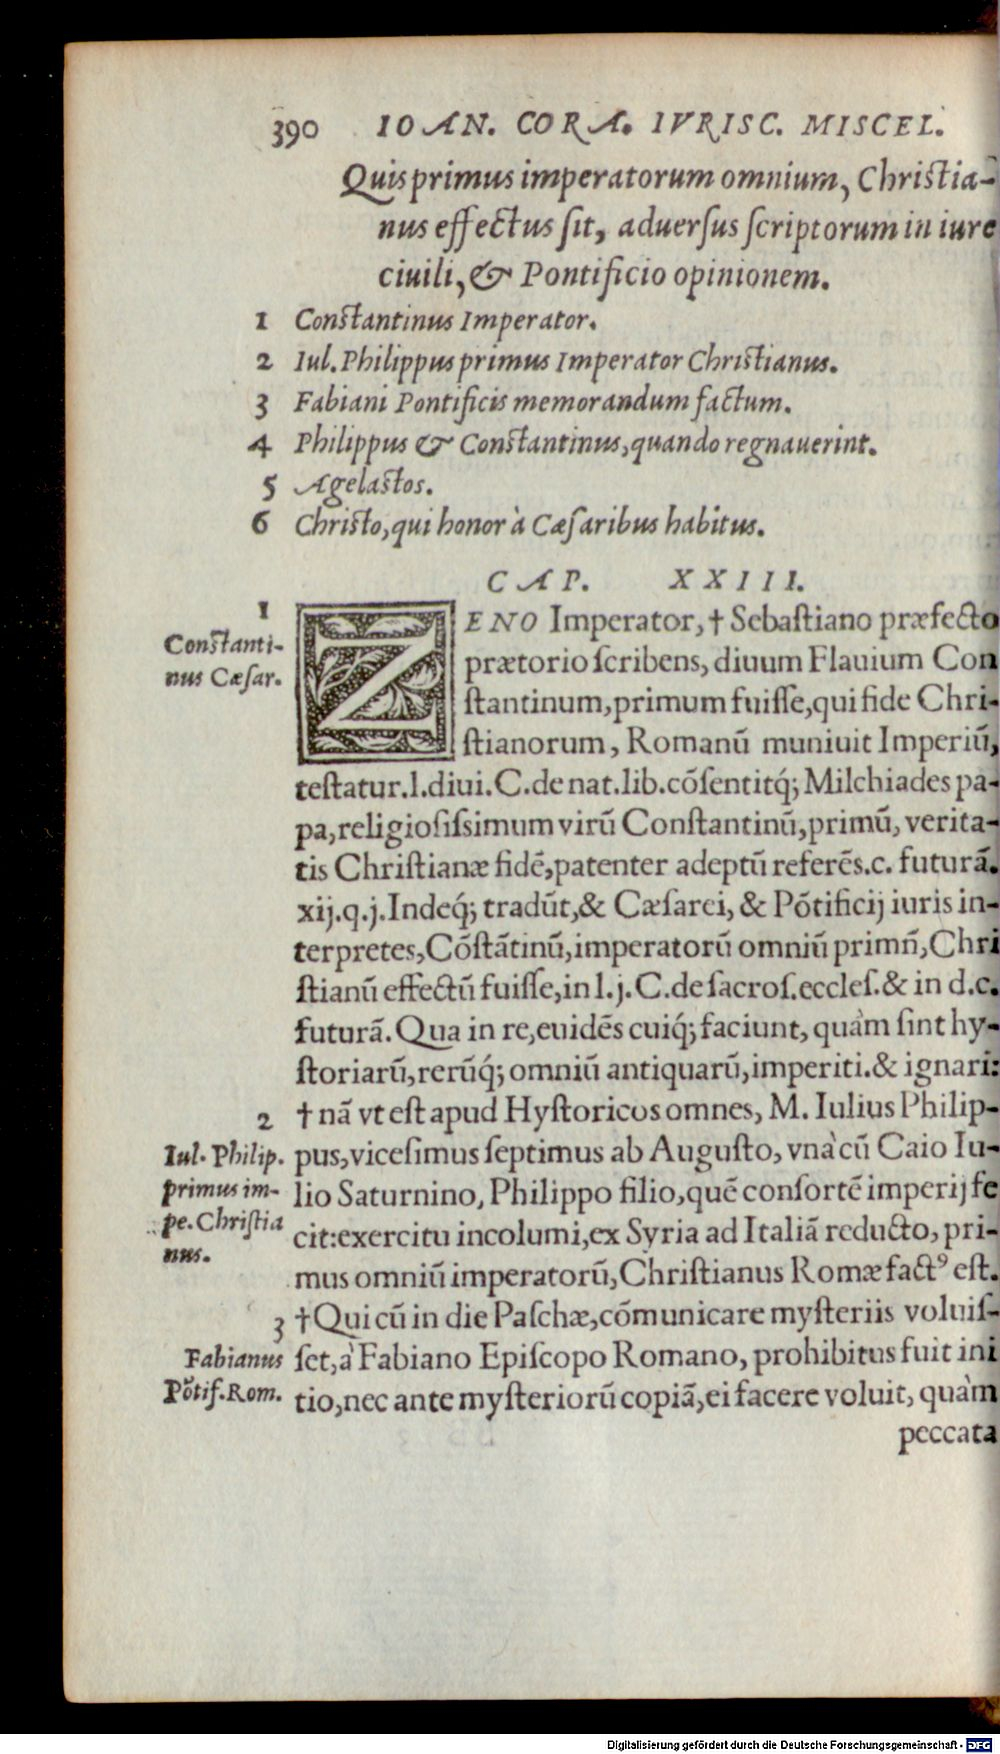 390 IOAN. CORA. IVRISC. MISCEL.
Quis primus imperatorum omnium, Christia-
nus effectus ſit, aduerſus ſcriptorum in iure
ciuili, & Pontificio opinionem.
1 Constantinus Imperator.
2 Iul. Philippus primus Imperator Christianus.
3 Fabiani Pontificis memorandum factum.
4 Philippus & Constantinus, quando regnauerint.
5 Agelastos.
6 Christo, qui honor à Cæſaribus habitus.
CAP. XXIII.
1
Constanti-
nus Cæſar.
ZENO Imperator, † Sebaſtiano præfecto
prætorio ſcribens, diuum Flauium Con
ſtantinum, primum fuiſſe, qui fide Chri-
ſtianorum, Romanũ muniuit Imperiũ,
teſtatur. l. diui. C. de nat. lib. cõſentitq́; Milchiades pa-
pa, religioſiſsimum virũ Conſtantinũ, primũ, verita-
tis Chriſtianæ fidẽ, patenter adeptũ referẽs. c. futurã.
xij. q. j. Indeq́; tradũt, & Cæſarei, & Põtificij iuris in-
terpretes, Cõſtãtinũ, imperatorũ omniũ primũ, Chri
ſtianũ effectũ fuiſſe, in l. j. C. de ſacroſ. eccleſ. & in d. c.
futurã. Qua in re, euidẽs cuiq́; faciunt, quàm ſint hy-
ſtoriarũ, rerũq́; omniũ antiquarũ, imperiti. & ignari:
2
Iul. Philip.
primus im-
pe. Chriſtia
nus.
† nã vt eſt apud Hyſtoricos omnes, M. Iulius Philip-
pus, viceſimus ſeptimus ab Auguſto, vnà cũ Caio Iu-
lio Saturnino, Philippo filio, quẽ conſortẽ imperij fe
cit: exercitu incolumi, ex Syria ad Italiã reducto, pri-
mus omniũ imperatorũ, Chriſtianus Romæ factꝰ eſt.
3
Fabianus
Põtif. Rom.
† Qui cũ in die Paſchæ, cõmunicare myſteriis voluiſ-
ſet, à Fabiano Epiſcopo Romano, prohibitus fuit ini
tio, nec ante myſteriorũ copiã, ei facere voluit, quàm
peccata
Digitalisierung gefördert durch die Deutsche Forschungsgemeinschaft - DFG